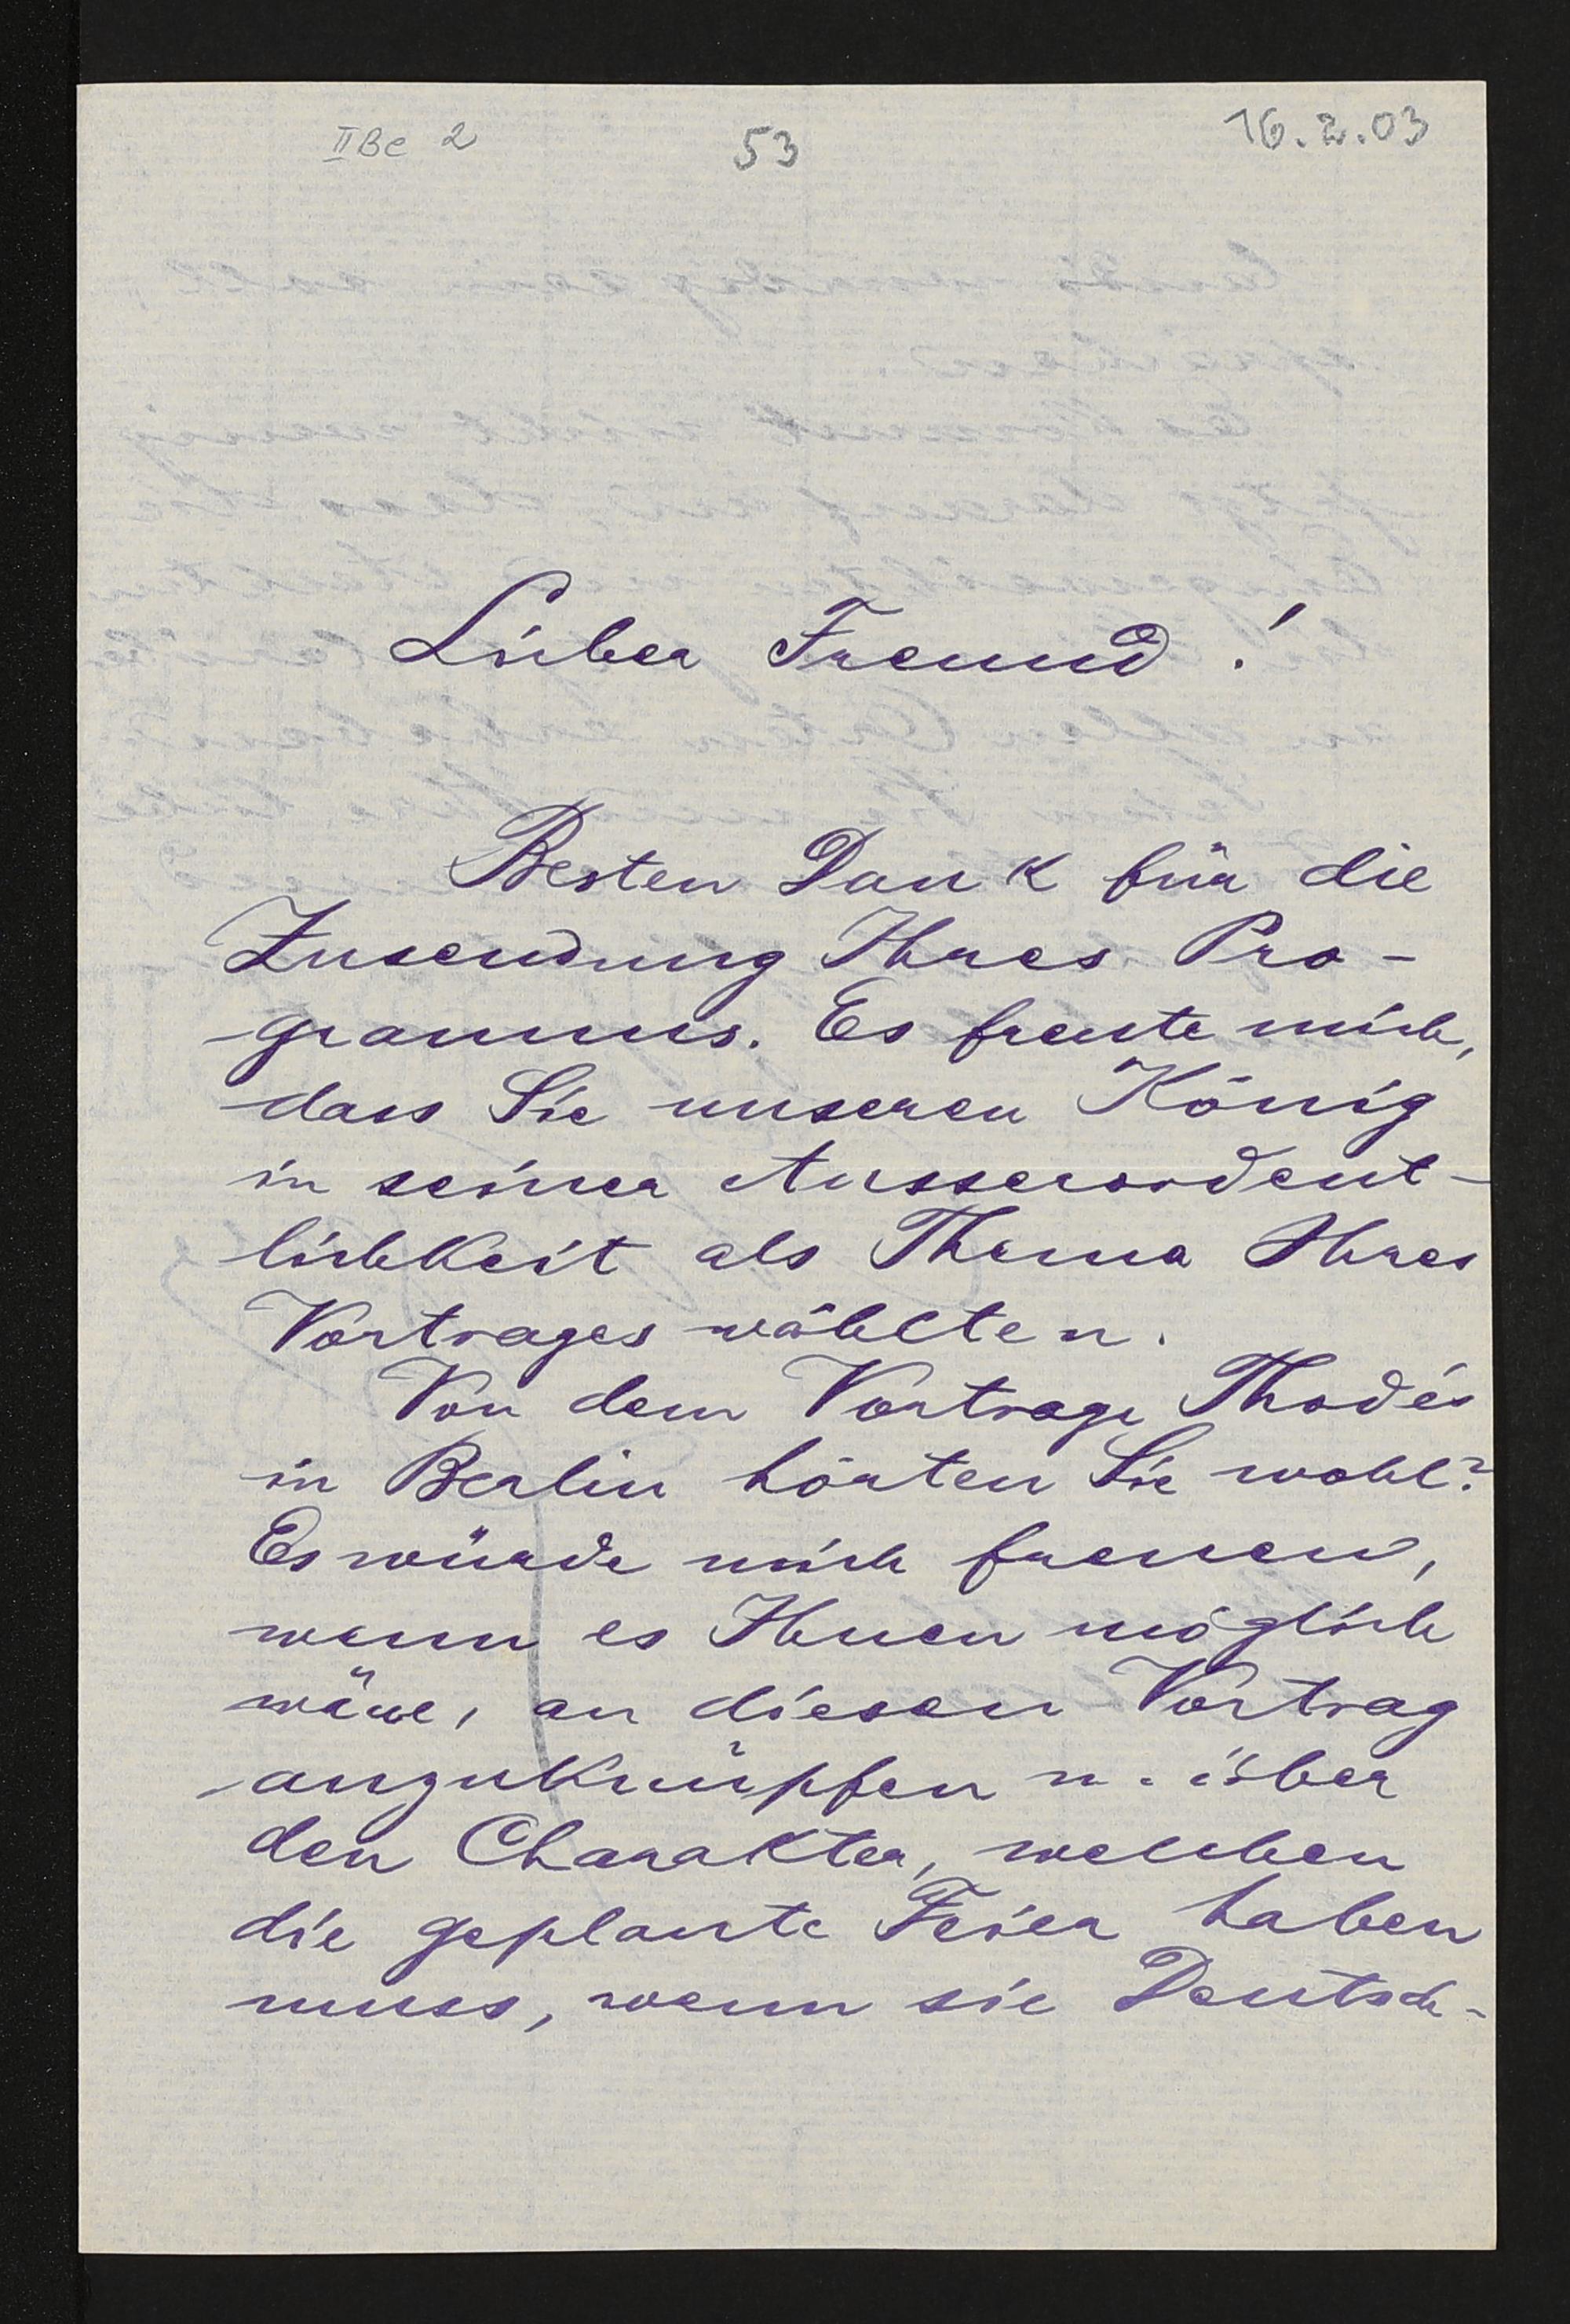 II Be 2 53 16.2.03
Lieber Freund!
Besten Dank für die
Zusendung Ihres Pro-
gramms. Es freute mich,
dass Sie unseren König
in seiner Ausserordent-
lichkeit als Thema Ihres
Vortrages wählten.
Von dem Vortrage Thode's
in Berlin hörten Sie wohl?
Es würde mich freuen,
wenn es Ihnen möglich
wäre, an diesen Vortrag
anzuknüpfen u. über
den Charakter, welchen
die geplante Feier haben
muss, wenn sie Deutsch-